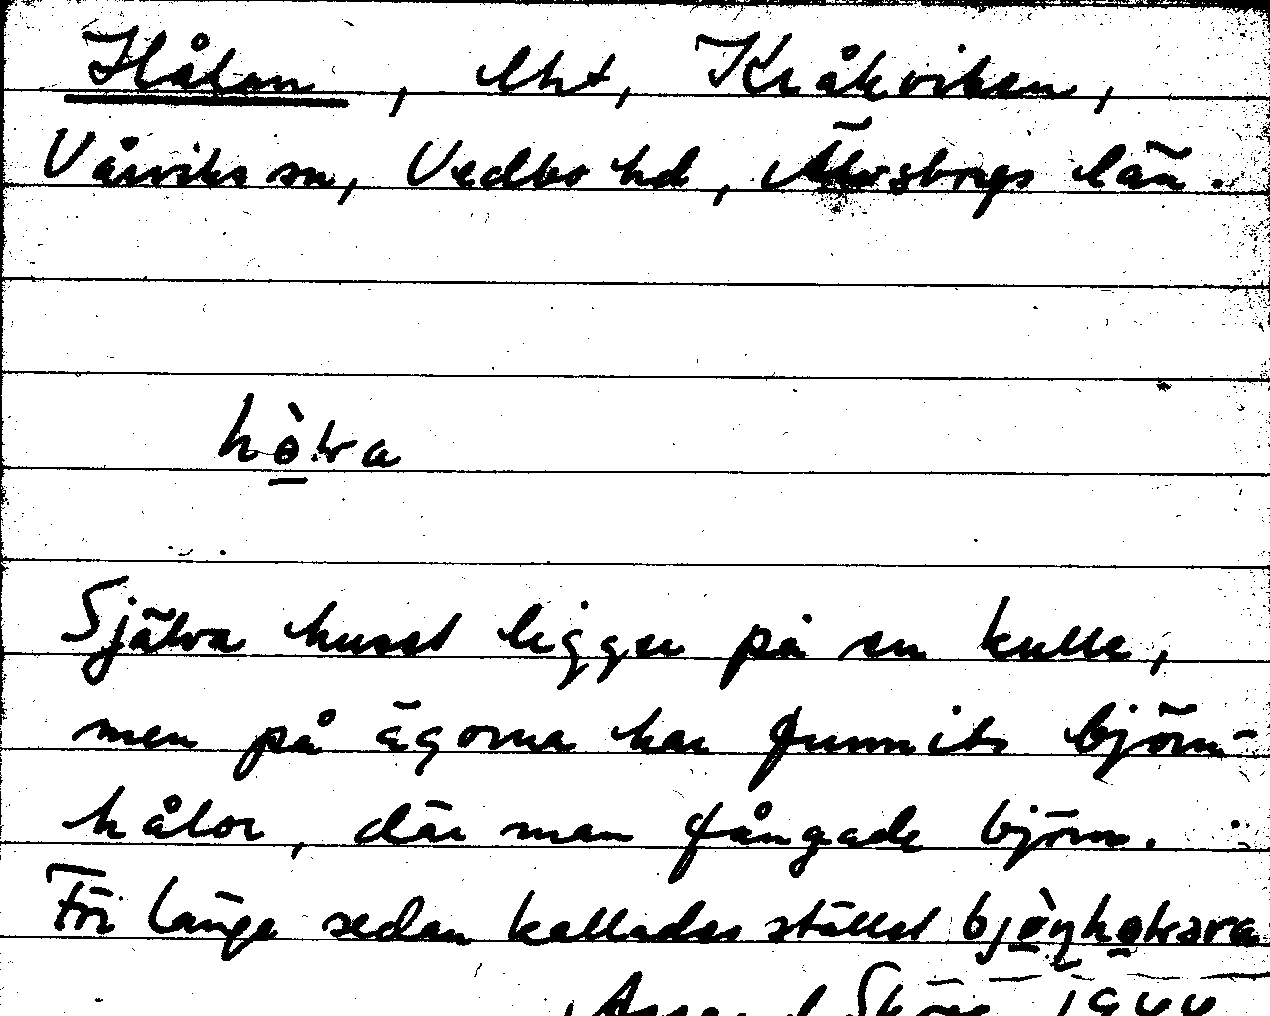 Hålan, lht, Kråkviken,
Vårviks sn, Vedbo hd, Älvsborgs län.
Själva huset ligger på en kulle,
men på ägorna har funnits björn-
hålor, där man fångade björn.
För länge sedan kallades stället
Sköld 1944